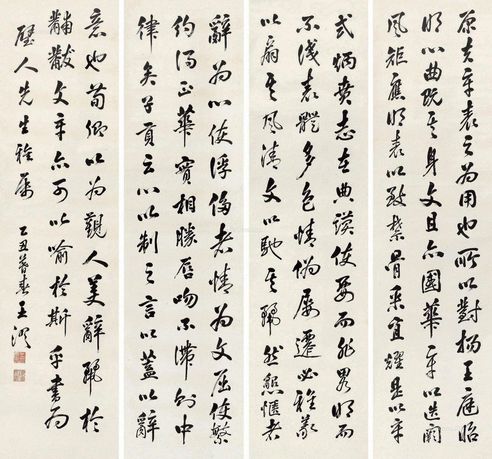 原夫章表之為用也所以對揚王庭昭
明心曲既其身文且亦國華章以造闕
風矩應明表以致禁骨采宜耀是以章
式炳賁志在典謨使要而非畧明而
不淺表體多包情偽屢遷必雅義
以扇其風清文以馳其麗然懇惻者
辭為心使浮侈者情為文屈使繁
約得正華實相勝唇吻不滯則中
律矣子貢云心以制之言以蓋以辭
意也荀卿以為觀人美辭麗於
黼黻文章亦可以喻於斯乎書為
璧人先生雅屬
乙丑暮春王